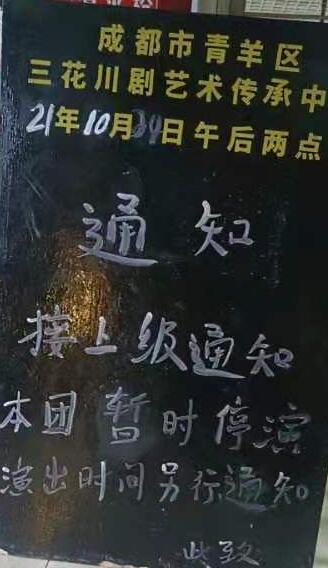 成都市青羊区
三花川剧艺术传承中
21年10月24日午后两点
通知
接上级通知
本团暂时停演
演出时间另行通知
此致